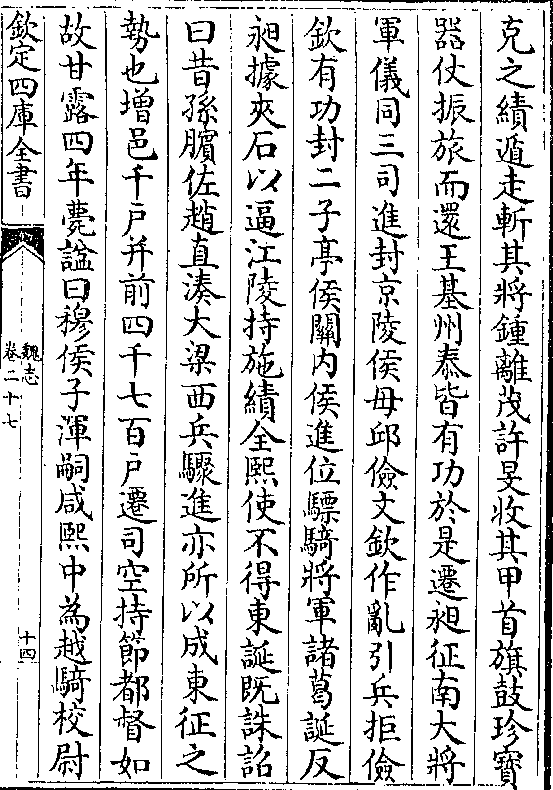 克之績遁走斬其將鍾離茂許旻收其甲首旗鼓珍寶
器仗振旅而還王基州泰皆有功於是遷昶征南大將
軍儀同三司進封京陵侯毋邱儉文欽作亂引兵拒儉
欽有功封二子亭侯關內侯進位驃騎將軍諸葛誕反
昶據夾石以逼江陵持施績全熙使不得東誕既誅詔
曰昔孫臏佐趙直湊大梁西兵驟進亦所以成東征之
勢也增邑千戶并前四千七百戶遷司空持節都督如
故甘露四年薨諡曰穆侯子渾嗣咸熙中為越騎校尉
欽定四庫全書
魏志
卷二十七
十四